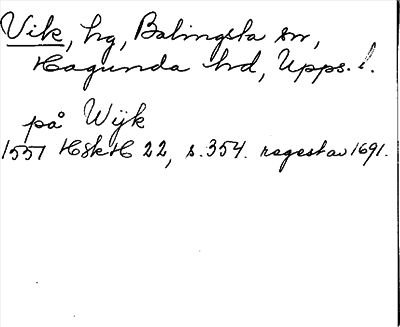 Vik, hg, Balingsta sn,
Hagunda hd, Upps. l.
på Wijk
1557 HSkH 22, s. 354. regest av 1691.